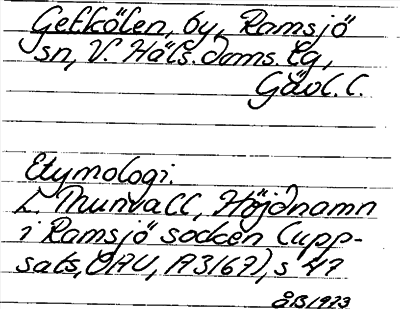 Getkölen, by, Ramsjö
sn, V. Häls. doms. lg,
Gävl. l.
Etymologi.
L. Thunvall, Höjdnamn
i Ramsjö socken (upp-
sats, OAU, A3167), s 47
ÅB 1973